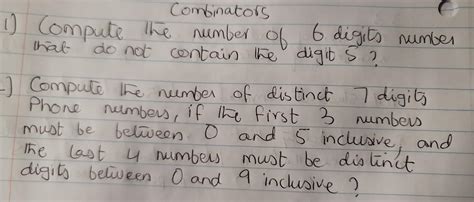 Combinators
1) Compute the number of 6 digits number
that do not contain the digit 5 ?
) Compute the number of distinct 7 digits
Phone numbers, if the first 3 numbers
must be between 0 and 5 inclusive, and
the last 4 numbers must be distinct
digits between 0 and 9 inclusive ?